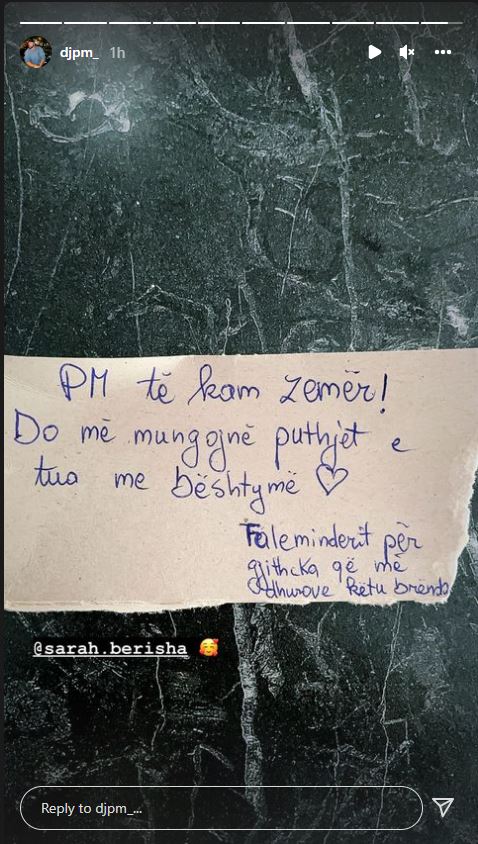 djpm_ 1h
PM të kam zemër!
Do më mungojnë puthjet e
tua me bështymë
Faleminderit për
gjithcka që më
dhurove këtu brënda
@sarah.berisha 🥰
Reply to djpm_...